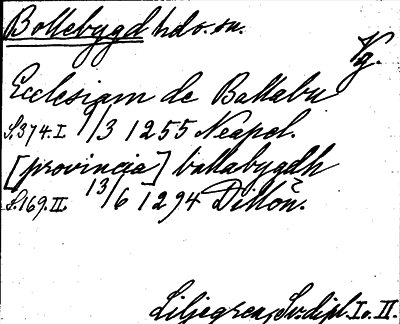 Bollebygd hds. sn.
Vg.
Ecclesiam de Ballabu
S. 374. I 9/3 1255 Neapel.
[provincia] ballabygdh
S. 169. II. 13/6 1294 Dillön.
Liljegren, Sv. dipl. I o. II.